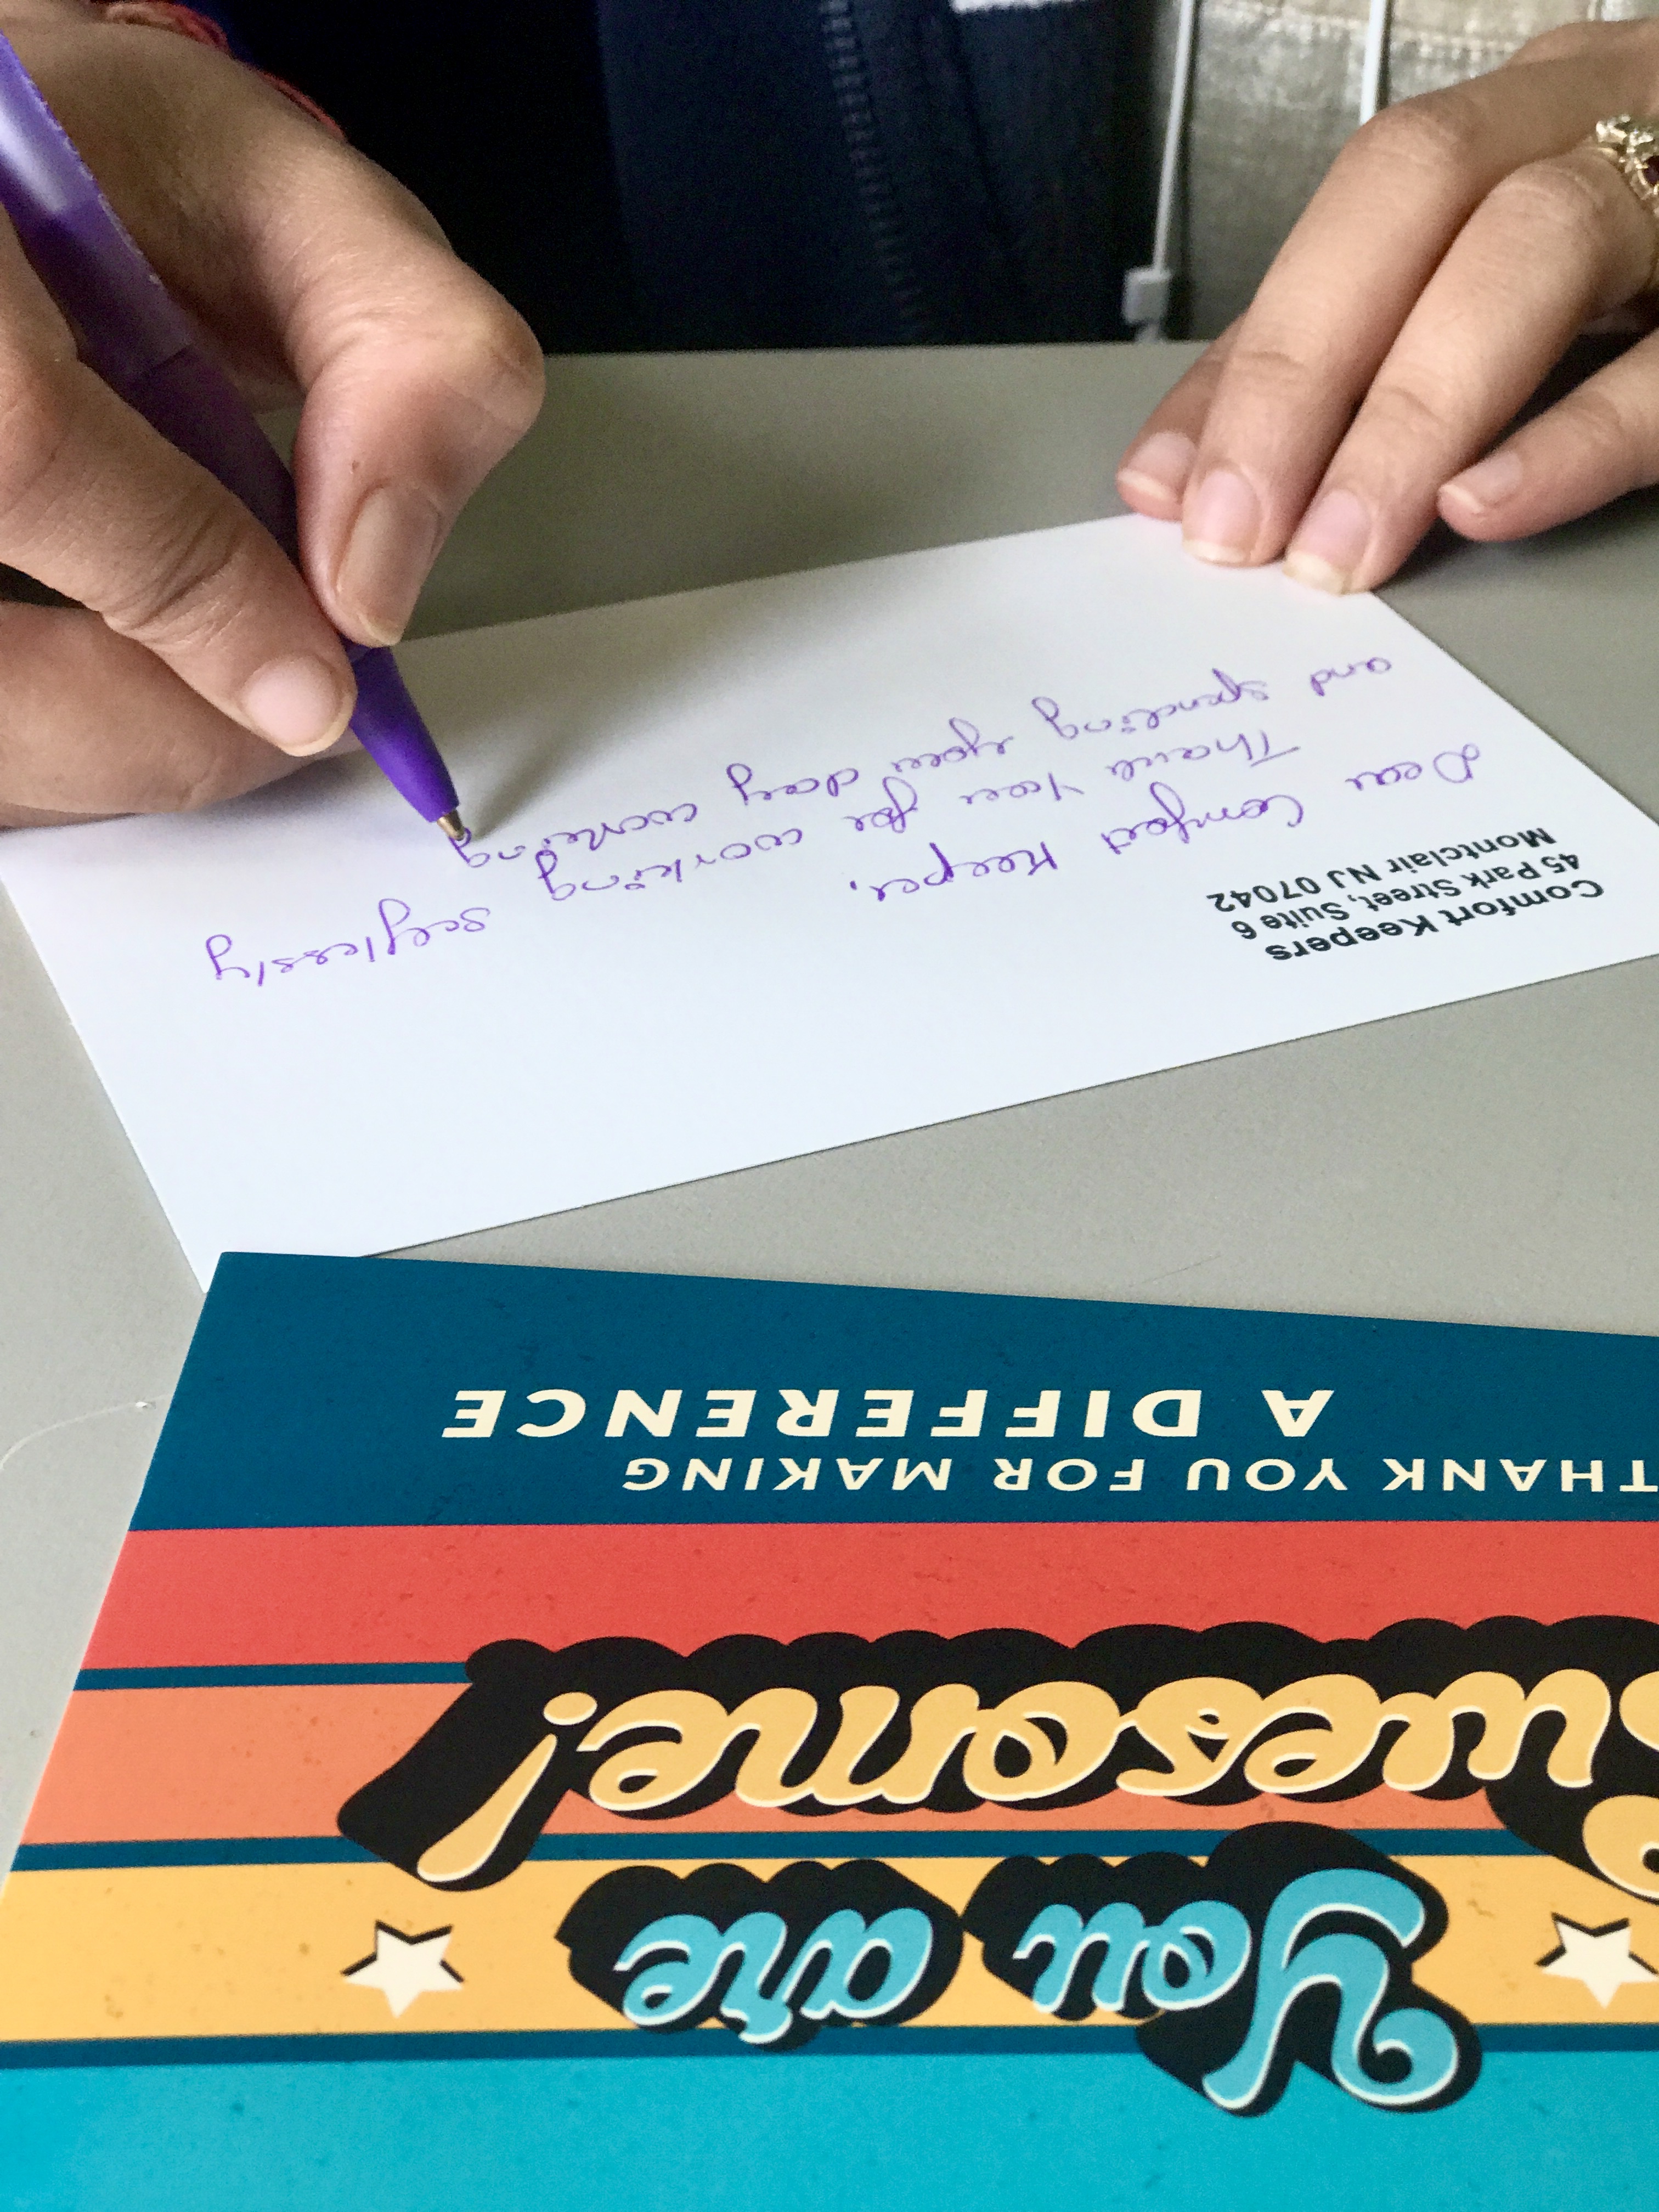 Comfort Keepers
45 Park Street, Suite 6
Montclair NJ 07042
Dear Comfort Keeper,
Thank you for working selflessly
and spending your day working
You are
Awesome!
THANK YOU FOR MAKING
A DIFFERENCE